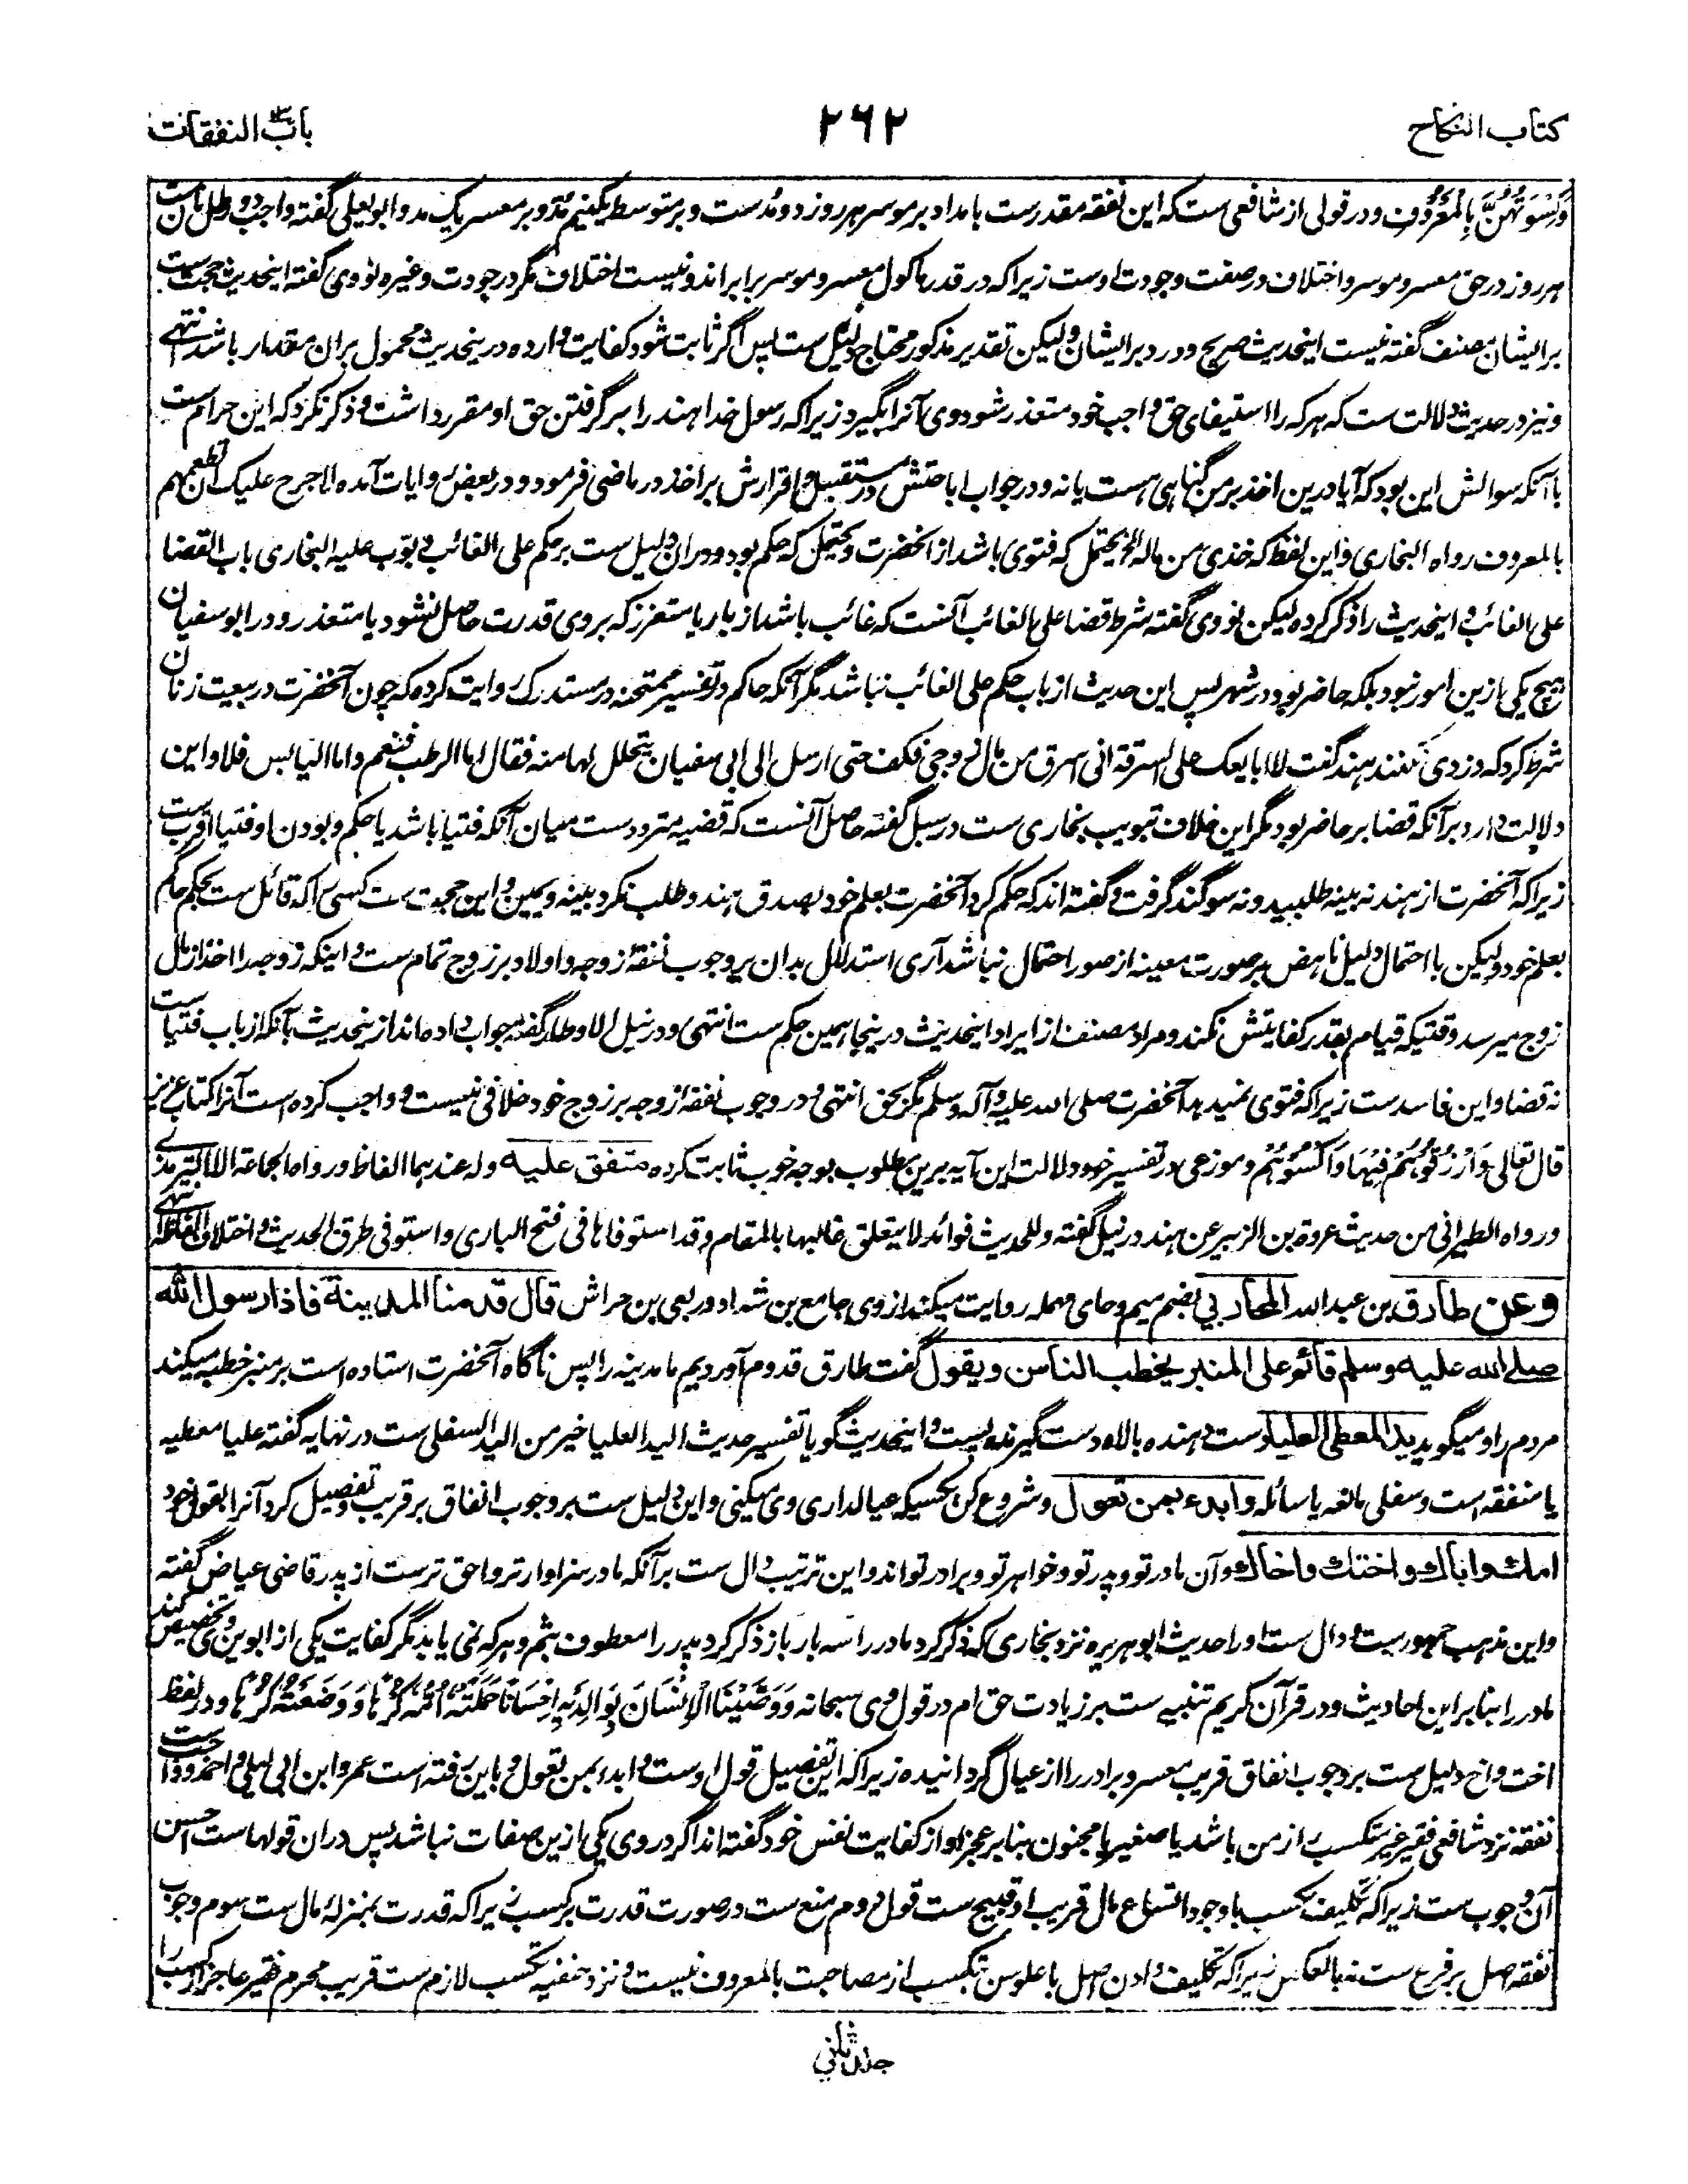 کتاب النکاح
۲۶۲
باب النفقات
وَکِسْوَتُهُنَّ بِالْمَعْرُوْفِ ودر قولی از شافعی ست که این نفقه مقدرست بامداد بر موسر هر روز دو مُدست و بر متوسط یکنیم مُد و بر معسر یک مد و ابو یعلی گفته واجب دو رطل نان ست
هر روز در حق معسر و موسر و اختلاف در صفت وجودت اوست زیرا که در قدر ماکول معسر و موسر برابر اند و نیست اختلاف مگر در جودت و غیره نووی گفته اینحدیث حجت ست
بر ایشان مصنف گفته نیست اینحدیث صریح در رد بر ایشان ولیکن تقدیر مذکور محتاج دلیل ست پس اگر ثابت شود کفایت وارده درینحدیث محمول بران مقدار باشد انتهی
و نیز در حدیث دلالت ست که هر که را استیفای حق واجب خود متعذر شود وی را آنرا بگیرد زیرا که رسول خدا هند را بر گرفتن حق او مقرر داشت و ذکر نکرد که این حرام ست
با آنکه سوالش این بود که آیا درین اخذ بر من گناهی هست یا نه و در جواب اباحتش در مستقبل و اقرارش بر اخذ در ماضی فرمود و در بعض روایات آمده لا حرج علیک ان تطعمیهم
بالمعروف رواه البخاری و این لفظ که خذی من ماله الخ یحتمل که فتوی باشد از آنحضرت و یحتمل که حکم بود و دران دلیل ست بر حکم علی الغائب و بوّب علیه البخاری باب القضا
علی الغائب و اینحدیث را ذکر کرده لیکن نووی گفته شرط قضا علی الغائب آنست که غائب باشد از بلد یا متعزز که بر وی قدرت حاصل نشود یا متعذر و در ابو سفیان
هیچ یکی ازین امور نبود بلکه حاضر بود در شهر پس این حدیث از باب حکم علی الغائب نباشد مگر آنکه حاکم در تفسیر ممتحنه در مستدرک روایت کرده که چون آنحضرت در بیعت زنان
شرط کرد که دزدی نکنند هند گفت لا ابایعک علی السرقة انی اسرق من مال زوجی فکف حتی ارسل الی ابی سفیان یتحلل لها منه فقال اما الرطب فنعم و اما الیابس فلا و این
دلالت دارد بر آنکه قضا بر حاضر بود مگر این خلاف تبویب بخاری ست در سبل گفته حاصل آنست که قضیه مترددست میان آنکه فتیا باشد یا حکم و بودن او فتیا اقرب ست
زیرا که آنحضرت از هند نه بینه طلبید و نه سوگند گرفت و گفته اند که حکم کرد آنحضرت بعلم خود بصدق هند و طلب نکرد بینه و یمین و این حجت ست کسی را که قائل ست بحکم حاکم
بعلم خود ولیکن با احتمال دلیل ناهض بر صورت معینه از صور احتمال نباشد آری استدلال بدان بر وجوب نفقهٔ زوجه و اولاد بر زوج تمام ست و اینکه زوجه را اخذ از مال
زوج میرسد وقتیکه قیام بقدر کفایتش نکند و مراد مصنف از ایراد اینحدیث درینجا همین حکم ست انتهی و در نیل الاوطار گفته جواب داده اند ازینحدیث بآنکه از باب فتیا ست
نه قضا و این فاسدست زیرا که فتوی نمیدهد آنحضرت صلی الله علیه و آله وسلم مگر بحق انتهی و در وجوب نفقهٔ زوجه بر زوج خود خلافی نیست و واجب کرده است آنرا کتاب عزیز
قال تعالی وَارْزُقُوْهُمْ فِیْهَا وَاکْسُوْهُمْ و موزعی در تفسیر خود دلالت این آیه برین مطلوب بوجه خوب ثابت کرده متفق علیه وله عندهما الفاظ و رواه الجماعة الا الترمذی
ورواه الطبرانی من حدیث عروة بن الزبیر عن هند در نیل گفته وللحدیث فوائد لا یتعلق غالبها بالمقام وقد استوفاها فی فتح الباری واستوفی طرق الحدیث و اختلاف الفاظه انتهی
وعن طارق بن عبدالله المحاربي بضم میم و حای مهمله روایت میکند از وی جامع بن شداد و ربعی بن حراش قال قدمنا المدینة فاذا رسول الله
صلے الله علیه وسلم قائم علی المنبر یخطب الناس ویقول گفت طارق قدوم آوردیم ما مدینه را پس ناگاه آنحضرت استاده است بر منبر خطبه میکند
مردم را و میگوید ید المعطی العلیا دست دهنده بالاء دست گیرنده نیست و اینحدیث گویا تفسیر حدیث الید العلیا خیر من الید السفلی ست در نهایه گفته علیا معطیه
یا منفقه است و سفلی مانعه یا سائله وابدء بمن تعول و شروع کن بکسیکه عیالداری وی میکنی و این دلیل ست بر وجوب انفاق بر قریب و تفصیل کرد آنرا بقول خود
امك واباك واختك واخاك و آن مادر تو و پدر تو و خواهر تو و برادر تو اند و این ترتیب دال ست بر آنکه مادر سزاوارتر و احق ترست از پدر قاضی عیاض گفته
و این مذهب جمهورست و دال ست او را حدیث ابو هریره نزد بخاری که ذکر کرد مادر را سه بار باز ذکر کرد پدر را معطوف بثم و هر که نمی یابد مگر کفایت یکی از ابوین وی تخصیص کند
مادر را بنا بر این احادیث و در قرآن کریم تنبیه ست بر زیادت حق ام در قول وی سبحانه وَوَصَّیْنَا الْاِنْسَانَ بِوَالِدَیْهِ اِحْسَانًا حَمَلَتْهُ اُمُّهُ کُرْهًا وَّوَضَعَتْهُ کُرْهًا و در لفظ
اخت و اخ دلیل ست بر وجوب انفاق قریب معسر و برادر را از عیال گردانیده زیرا که این تفصیل قول اوست وابدء بمن تعول و باین رفته است عمر و ابن ابی لیلی و احمد و واجب ست
نفقه نزد شافعی فقیر غیر متکسب را زمن باشد یا صغیر یا مجنون بنا بر عجز او از کفایت نفس خود گفته اند اگر در وی یکی ازین صفات نباشد پس دران قولهاست احسن
آن وجوب ست زیرا که تکلیف تکسب با وجود اتساع مال قریب او قبیح ست قول دوم منع ست در صورت قدرت بر کسب زیرا که قدرت بمنزلهٔ مال ست سوم وجوب
نفقه اصل بر فرع ست نه بالعکس زیرا که تکلیف دادن اصل با علو سن بتکسب از مصاحبت بالمعروف نیست و نزد حنفیه تکسب لازم ست قریب محرم فقیر عاجز از کسب را
جلد ثانی